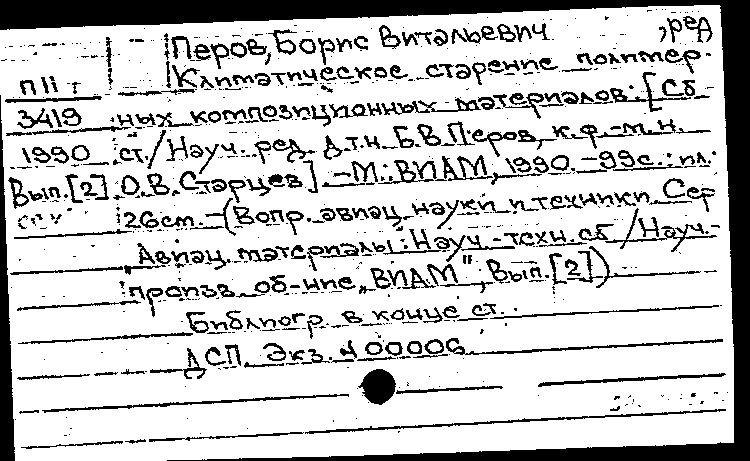 Перов, Борис Витальевич, ред
Климатическое старение полимер-
П II т
3419 ных композиционных материалов: [Сб
1990 ст./Науч. ред. д.т.н. Б.В.Перов, к.ф.-м.н.
Вып.[2] О.В.Старцев]. -М.: ВИАМ, 1990. -99с.: ил.;
26см. -(Вопр. авиац. науки и техники. Сер
Авиац. материалы: Науч.-техн. сб/Науч.-
произв. об-ние „ВИАМ", Вып.[2])
Библиогр. в конце ст.
ДСП. Экз. N 00006.